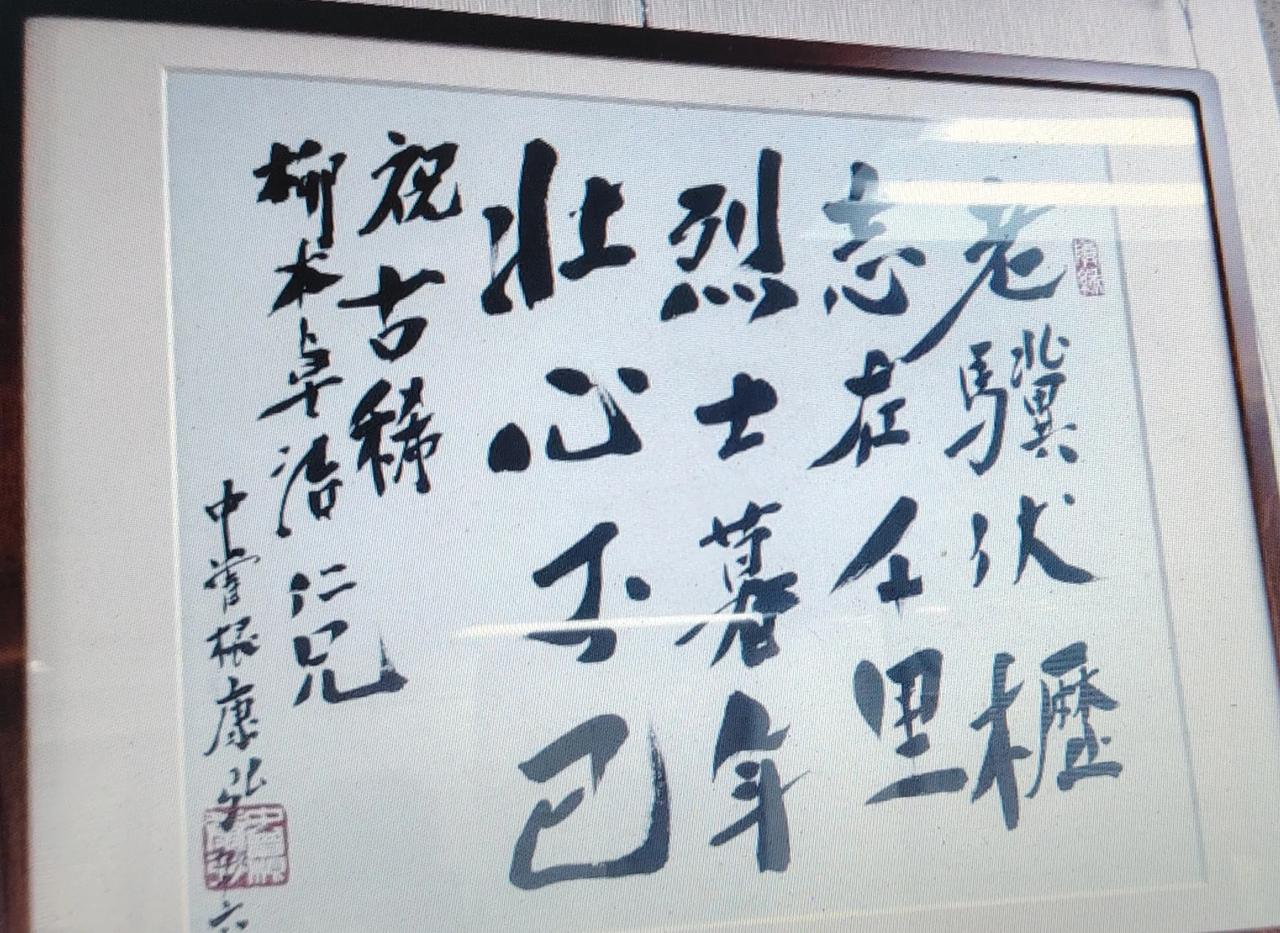 老驥伏櫪
志在千里
烈士暮年
壮心不已
祝古稀
柳本卓治仁兄
中曽根康弘